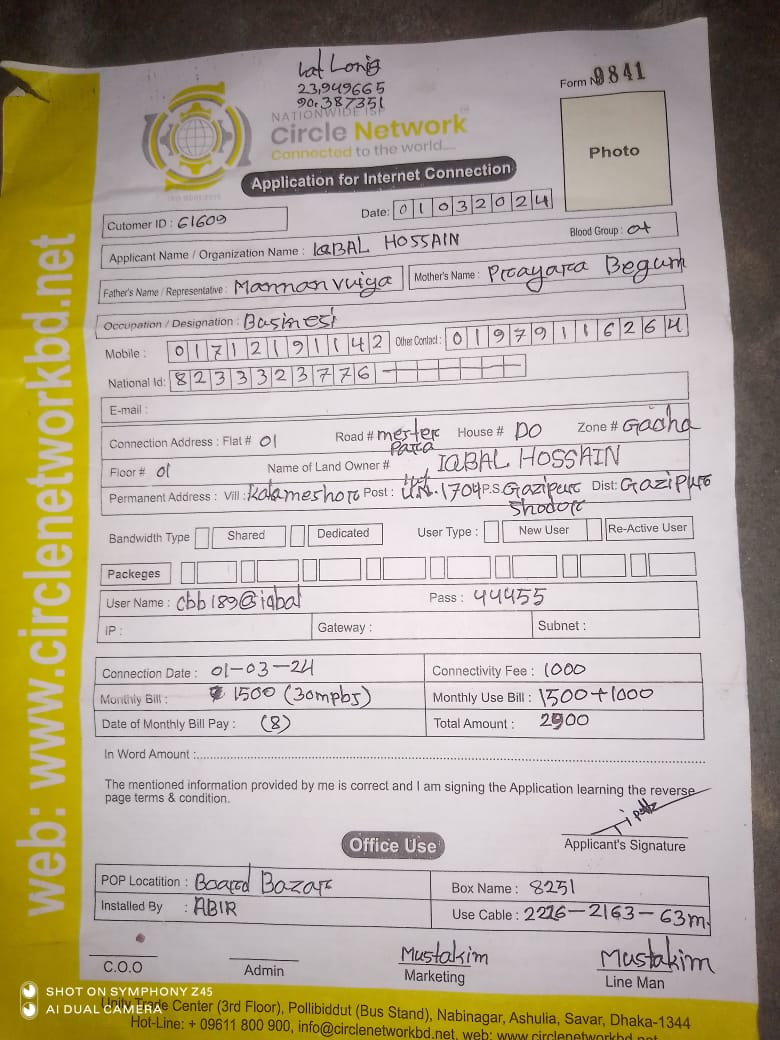 Lat Long
23,949665
90,387351
Form No 9841
NATIONWIDE ISP
Circle Network
Connected to the world....
Photo
Application for Internet Connection
Cutomer ID : 61609
Date: 01032024
Applicant Name / Organization Name : IQBAL HOSSAIN
Blood Group : O+
Father's Name / Representative : Mannan vuiya
Mother's Name : Begum
Occupation / Designation :
Mobile : 01712191142 Other Contact : 01979116264
National Id: 8233323776
E-mail :
Connection Address : Flat # 01 Road # mester Para House # DO Zone # Gacha
Floor # 01 Name of Land Owner # IQBAL HOSSAIN
Permanent Address : Vill : Kalameshor Post : 1704 P.S. Gazipur Shodor Dist: Gazipur
Bandwidth Type Shared Dedicated User Type : New User Re-Active User
Packeges
User Name : cbb189@iqbal Pass : 44455
IP : Gateway : Subnet :
Connection Date : 01-03-24 Connectivity Fee : 1000
Monthly Bill : 1500 (30mpbs) Monthly Use Bill : 1500+1000
Date of Monthly Bill Pay : (8) Total Amount :
In Word Amount :
The mentioned information provided by me is correct and I am signing the Application learning the reverse
page terms & condition.
Applicant's Signature
Office Use
POP Locatition : Board Bazar Box Name : 8251
Installed By : ABIR Use Cable : 2226-2163-63m.
C.O.O Admin Mustakim Marketing Mustakim Line Man
web: www.circlenetworkbd.net
SHOT ON SYMPHONY Z45
AI DUAL CAMERA
Unity Trade Center (3rd Floor), Pollibiddut (Bus Stand), Nabinagar, Ashulia, Savar, Dhaka-1344
Hot-Line: + 09611 800 900, info@circlenetworkbd.net, web: www.circlenetworkbd.net